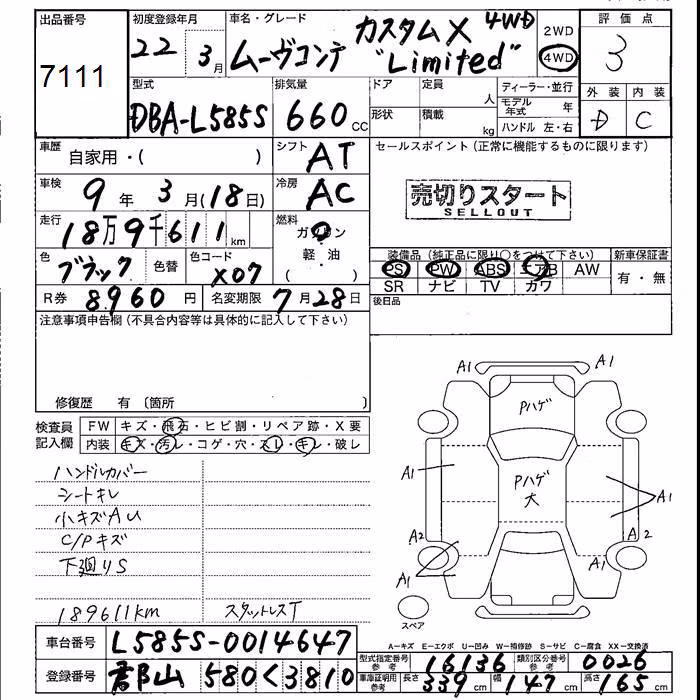 出品番号
7111
初度登録年月
22年 3月
車名・グレード
ムーヴコンテ カスタムX 4WD
"Limited"
2WD
4WD
評価点
3
外装 内装
D C
型式
DBA-L585S
排気量
660cc
ドア
形状
定員
人
積載
kg
ディーラー・並行
モデル年式 年
ハンドル 左・右
車歴
自家用・( )
シフト
AT
セールスポイント(正常に機能するものに限ります)
売切りスタート
SELLOUT
車検
9年 3月(18日)
冷房
AC
走行
18万9千611km
燃料
ガソリン
軽・油
( )
色
ブラック
色替
色コード
X07
装備品(純正品に限り○をつけて下さい)
PS PW ABS エアB AW
SR ナビ TV カワ
新車保証書
有・無
後日品
R券
8960円
名変期限
7月28日
注意事項申告欄(不具合内容等は具体的に記入して下さい)
修復歴 有 〔箇所 〕
検査員記入欄
FW キズ・飛石・ヒビ割・リペア跡・X要
内装 キズ・汚レ・コゲ・穴・スレ・キレ・破レ
ハンドルカバー
シートキレ
小キズAU
C/Pキズ
下廻りS
189611km スタットレスT
A1 A1
Pハゲ
A1
Pハゲ
大
A1
A2 A2
A1 A1
スペア
A−キズ E−エクボ U−凹み W−補修跡 S−サビ C−腐食 XX−交換済
車台番号
L585S-0014647
型式指定番号参考
16136
類別区分番号参考
0026
登録番号
郡山 580 く 3810
車庫証明用参考
長さ 339cm 幅 147cm 高さ 165cm